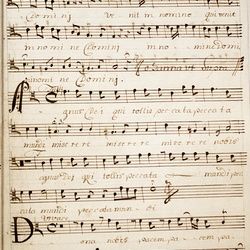 Domini venit in nomine qui venit
in nomine Domini in no mine domi
in nomine Domini. Osanna ut supra
Agnus Dei qui tollis peccata peccata
mundi miserere miserere nobis
agnus Dei qui tollis mundi pec
cata mundi peccata mundi
Dona nobis pacem pacem pa